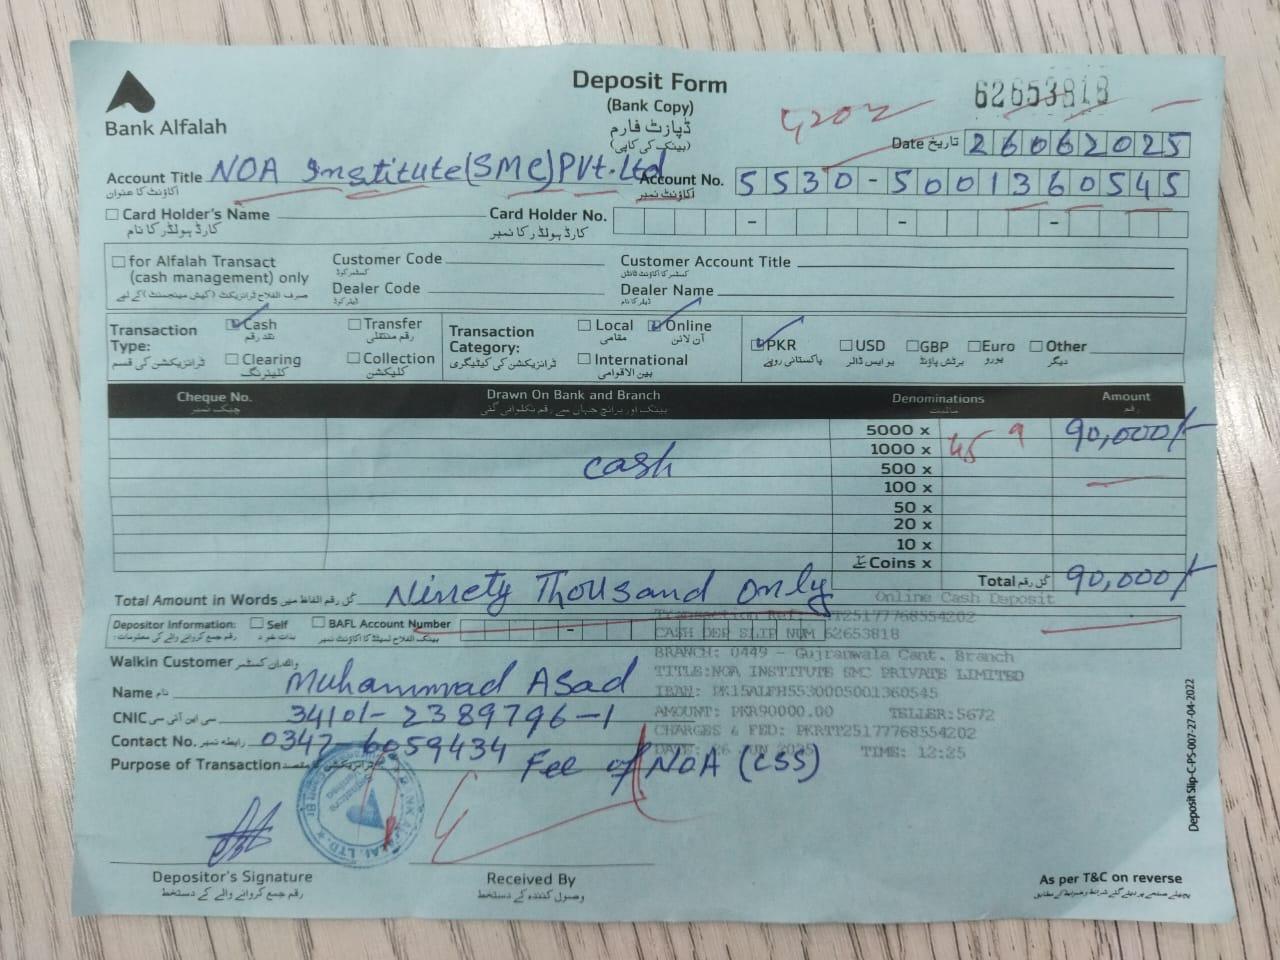 Deposit Form
(Bank Copy)
ڈپازٹ فارم
(بینک کی کاپی)
Bank Alfalah
62653818
4202
Date تاریخ 26062025
Account Title NOA Institute (SMC) Pvt. Ltd
اکاؤنٹ کا عنوان
Account No. 5530-5001360545
اکاؤنٹ نمبر
Card Holder's Name
کارڈ ہولڈر کا نام
Card Holder No.
کارڈ ہولڈر کا نمبر
for Alfalah Transact
(cash management) only
Customer Code
Customer Account Title
Dealer Code
Dealer Name
Transaction Type:
ٹرانزیکشن کی قسم
Cash
نقد رقم
Transfer
رقم منتقلی
Clearing
کلیئرنگ
Collection
کلیکشن
Transaction Category:
ٹرانزیکشن کی کیٹیگری
Local
مقامی
Online
آن لائن
International
بین الاقوامی
PKR
پاکستانی روپے
USD
یو ایس ڈالر
GBP
برٹش پاؤنڈ
Euro
یورو
Other
دیگر
Cheque No.
چیک نمبر
Drawn On Bank and Branch
Denominations
مالیت
Amount
رقم
5000 x 90,000/-
1000 x
cash
500 x
100 x
50 x
20 x
10 x
Coins x
Total کل رقم 90,000/-
Total Amount in Words کل رقم الفاظ میں Ninety Thousand only
Online Cash Deposit
Transaction Ref: TT25177768554202
CASH DEP SLIP NUM 62653818
BRANCH: 0449 - Gujranwala Cant. Branch
TITLE:NOA INSTITUTE SMC PRIVATE LIMITED
IBAN: PK15ALFH5530005001360545
AMOUNT: PKR90000.00 TELLER:5672
CHARGES & FED: PKRTT25177768554202
DATE: 26 JUN 2025 TIME: 12:25
Depositor Information: Self BAFL Account Number
Walkin Customer
Name نام Muhammad Asad
CNIC سی این آئی سی 34101-2389796-1
Contact No. رابطہ نمبر 0347 6059434
Purpose of Transaction Fee of NOA (CSS)
Depositor's Signature
رقم جمع کروانے والے کے دستخط
Received By
وصول کنندہ کے دستخط
As per T&C on reverse
Deposit Slip-C-PS-007-27-04-2022